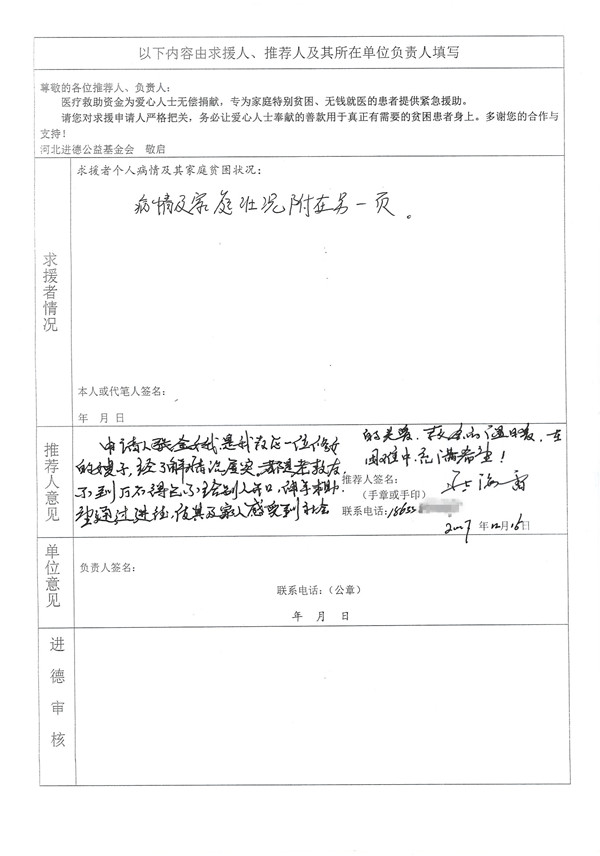 以下内容由求援人、推荐人及其所在单位负责人填写
尊敬的各位推荐人、负责人：
医疗救助资金为爱心人士无偿捐献，专为家庭特别贫困、无钱就医的患者提供紧急援助。
请您对求援申请人严格把关，务必让爱心人士奉献的善款用于真正有需要的贫困患者身上。多谢您的合作与
支持！
河北进德公益基金会 敬启
求援者情况
求援者个人病情及其家庭贫困状况：
病情及家庭状况附在另一页。
本人或代笔人签名：
年 月 日
推荐人意见
申请人 是我 一位
的嫂子，经了解情况属实，都是老教友，
不到万不得已不 给别人开口，伸手求助
望通过进德，使其及家人感受到社会
的关爱， 的温暖，在
困难中充满希望！
推荐人签名：
（手章或手印）
联系电话：
年12月16日
单位意见
负责人签名：
联系电话：（公章）
年 月 日
进德审核